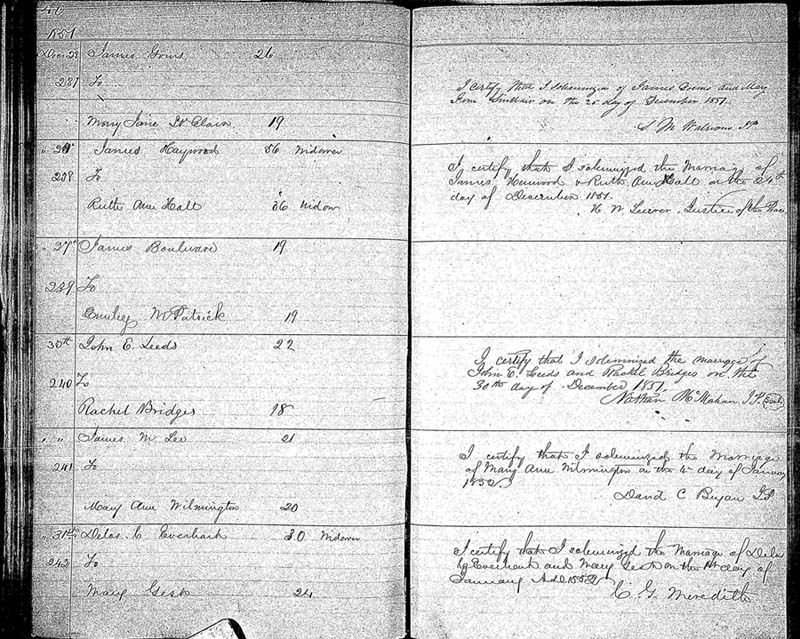 40
1851
James Goins 26
To
Mary Jane St Clair 19
James Haywood 36 Widower
238 To
Ruth Ann Hall 36 Widow
James Boulware 19
239 To
McPatrick 19
30th John E. Leeds 22
240 To
Rachel Bridges 18
" " James M Lee 21
241 To
Mary Ann Wilmington 20
" 31st Delos C Everhart 30 Widower
242 To
Mary Gest 24
I certify that I solemnize of James Goens and May
Sinclair on the 25 day of December 1851.
S M Watson JP
I certify that I solemnized the Marriage of
James Heywood & Ruth Ann Hall on the 24th
day of December 1851.
H W Leever Justice of the Peace
I certify that I solemnized the marriage of
John E. Leeds and Rachel Bridges on the
30th day of December 1851.
Nathan McMahan J.P. (Seal)
I certify that I solemnized the Marriage
of Mary Ann Wilmington on the 4 day of January
1852
David C Bryan J.P.
I certify that I solemnized the Marriage of Delos
C Everhart and Mary Gest on the 1st day of
January AD 1852
C G. Meredith